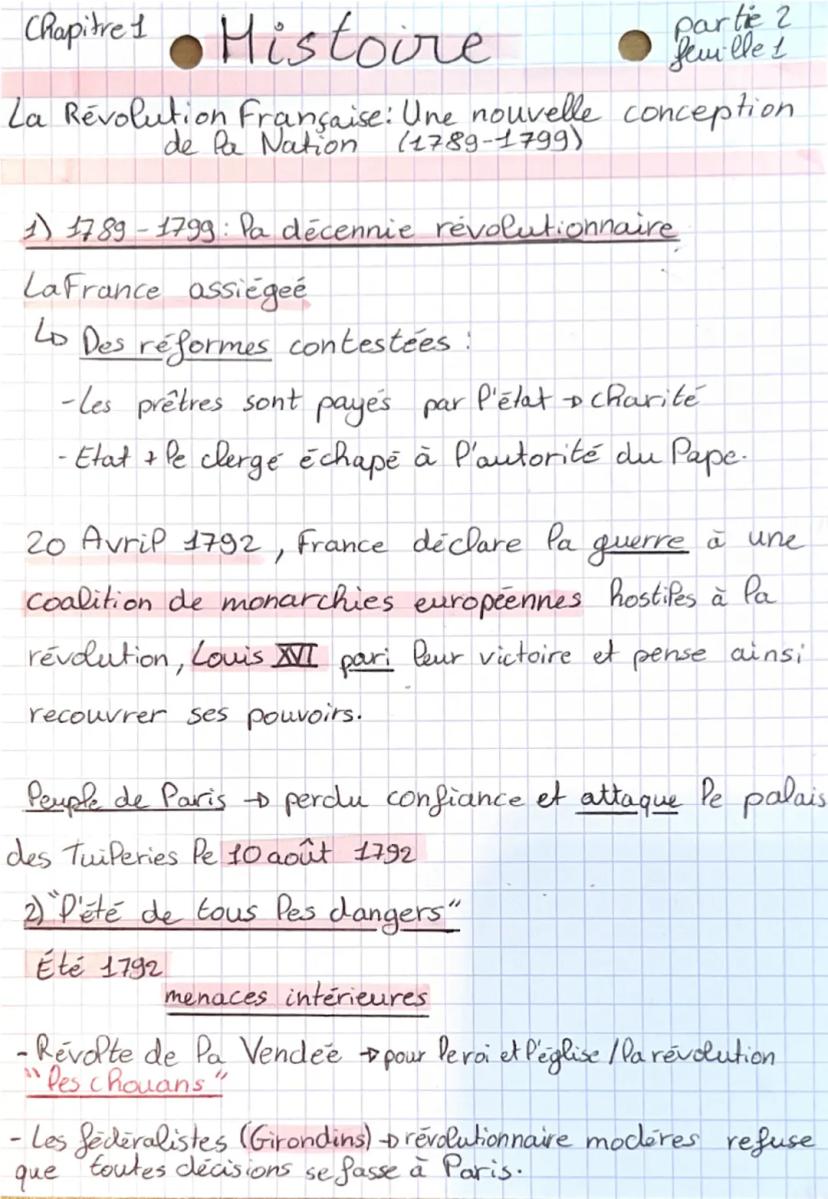 Chapitre 1
Histoire
partie 2
feuille 1
La Révolution Française: Une nouvelle conception
de la Nation (1789-1799)
1) 1789-1799: la décennie révolutionnaire
La France assiégeé
↳ Des réformes contestées :
- Les prêtres sont payés par l'état → charité
- Etat + le clergé échapé à l'autorité du Pape.
20 Avril 1792, France déclare la guerre à une
coalition de monarchies européennes hostiles à la
révolution, Louis XVI pari leur victoire et pense ainsi
recouvrer ses pouvoirs.
Peuple de Paris → perdu confiance et attaque le palais
des Tuileries le 10 août 1792
2) "l'été de tous les dangers"
Été 1792
menaces intérieures
- Révolte de la Vendeé → pour le roi et l'église / la révolution
"les chouans"
- Les fédéralistes (Girondins) → révolutionnaire modéres refuse
que toutes décisions se fasse à Paris.